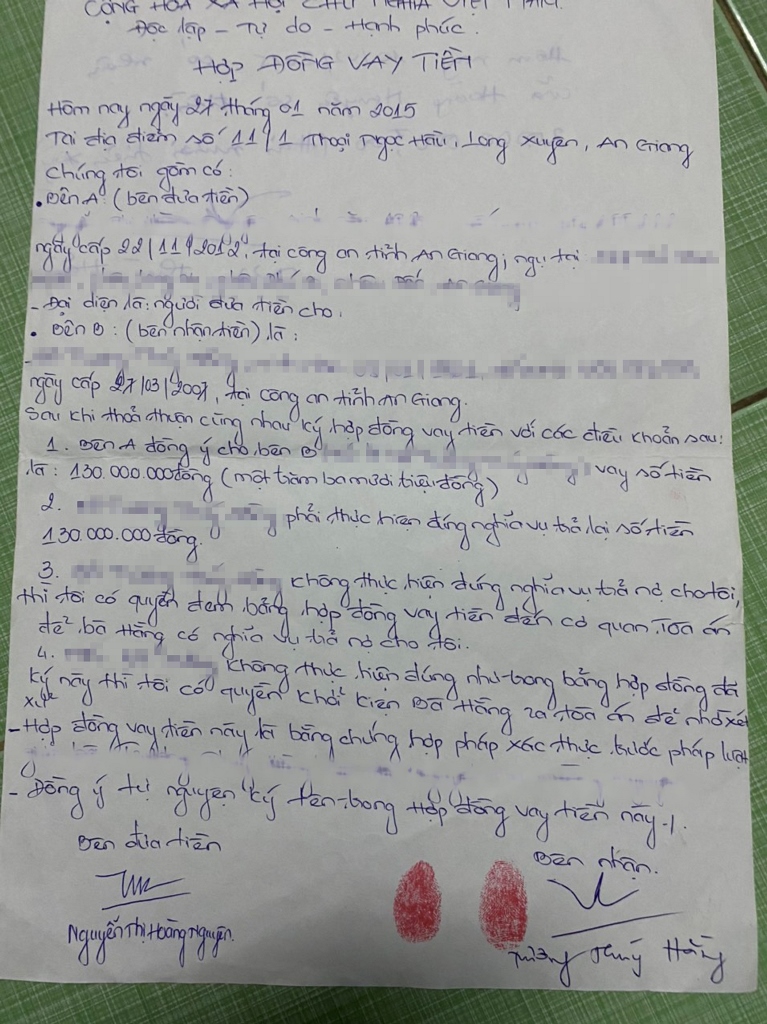 CỘNG HÒA XÃ HỘI CHỦ NGHĨA VIỆT NAM.
Độc lập - Tự do - Hạnh phúc.
HỢP ĐỒNG VAY TIỀN
Hôm nay ngày 27 tháng 01 năm 2015
Tại địa điểm số 11/1 Thoại Ngọc Hầu, Long Xuyên, An Giang
Chúng tôi gồm có:
• Bên A: (bên đưa tiền)
ngày cấp 22/11/2012, tại công an tỉnh An Giang; ngụ tại
- Đại diện là: người đưa tiền cho.
• Bên B: (bên nhận tiền) là:
ngày cấp 27/03/2007, tại công an tỉnh An Giang.
Sau khi thoả thuận cùng nhau ký hợp đồng vay tiền với các điều khoản sau:
1. Bên A đồng ý cho bên B vay số tiền
là: 130.000.000 đồng (một trăm ba mươi triệu đồng)
2. phải thực hiện đúng nghĩa vụ trả lại số tiền
130.000.000 đồng.
3. không thực hiện đúng nghĩa vụ trả nợ cho tôi,
thì tôi có quyền đem bảng hợp đồng vay tiền đến cơ quan Tòa án
để bà Hằng có nghĩa vụ trả nợ cho tôi.
4. không thực hiện đúng như trong bảng hợp đồng đã
ký này thì tôi có quyền khởi kiện Bà Hằng ra tòa án để nhờ xét
xử
- Hợp đồng vay tiền này là bằng chứng hợp pháp xác thực trước pháp luật
- Đồng ý tự nguyện ký tên trong Hợp đồng vay tiền này./.
Bên đưa tiền
Bên nhận.
Nguyễn Thị Hoàng Nguyên.
Trương Thuý Hằng